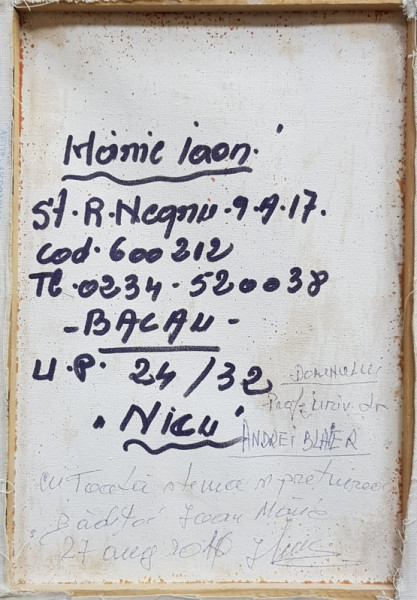 Mánie iaon.
St. R. Negnu. 9. A. 17.
Cod. 600212
Tl. 0234. 520038
- BACAU -
U.P. 24/32
"Nicu"
DOMNULUI
Prof. univ. dr
ANDREI BLAIER
cu Toată stima și prețuirea
Bădiței Ioan
27 aug